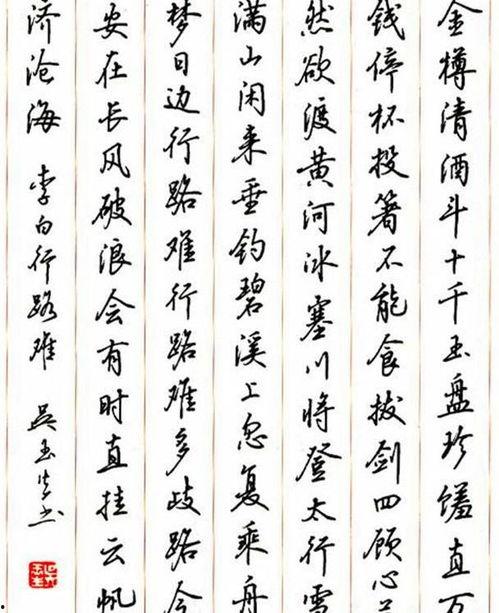 金樽清酒斗十千玉盘珍馐直万
钱停杯投箸不能食拔剑四顾心
然欲渡黄河冰塞川将登太行雪
满山闲来垂钓碧溪上忽复乘舟
梦日边行路难行路难多歧路今
安在长风破浪会有时直挂云帆
济沧海 李白行路难 吴玉生书